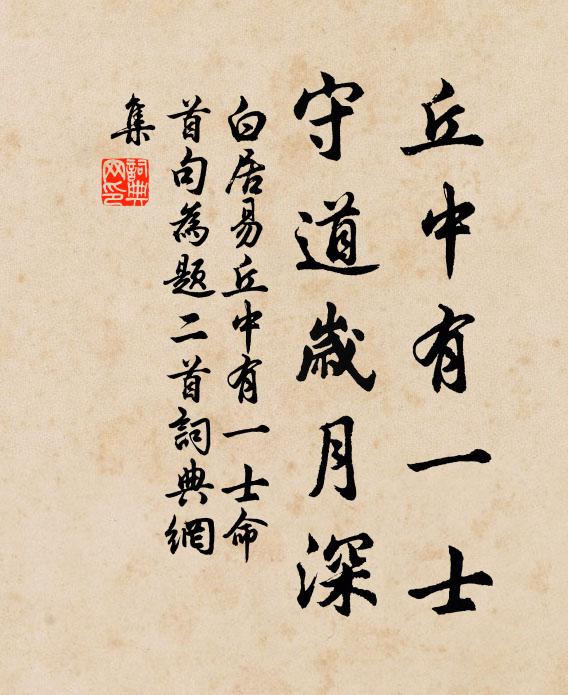 丘中有一士
守道歲月深
白居易丘中有一士命
首句為題二首詞典網
集
詞典
网印